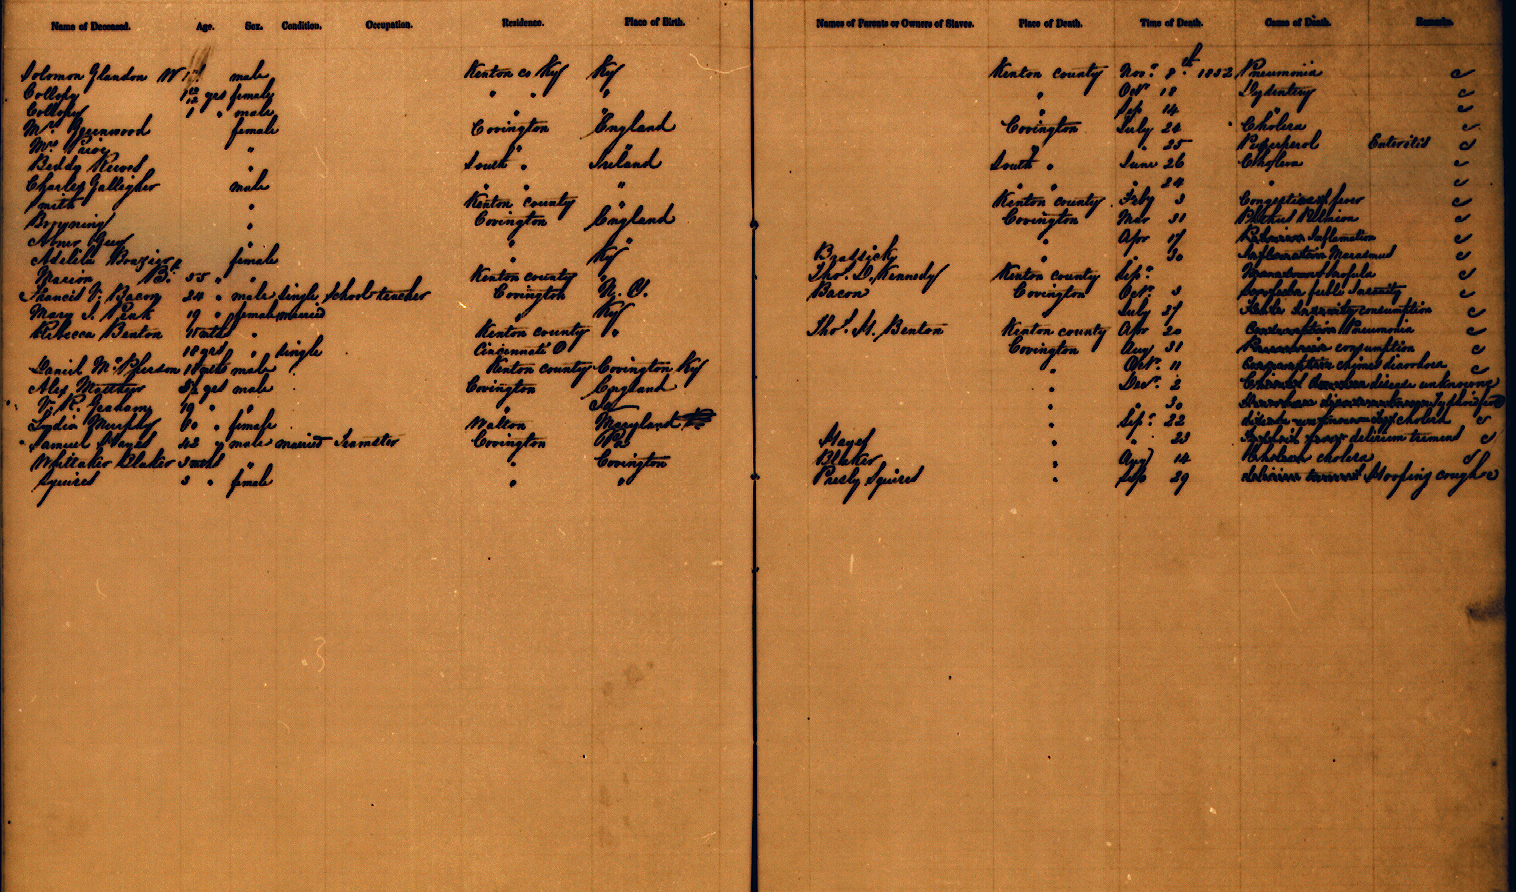 Name of Deceased. Age. Sex. Condition. Occupation. Residence. Place of Birth. Names of Parents or Owners of Slaves. Place of Death. Time of Death. Cause of Death. Remarks.
Solomon Glandon W male Kenton co Ky Ky Kenton county Nov. 8th 1852 Pneumonia
Collopy yrs female " " " " Oct. 18 Dysentery
Collopy 1 " male " " " Sep 14 "
Mrs. Greenwood female Covington England Covington July 24 Cholera
Mrs. " " " " " 25 Enteritis
Beddy " South " Ireland South " June 26 Cholera
Charles Gallegher male " " " " " " 24 "
Smith " Kenton county " Kenton county Feby 3 Congestive fever
" Covington England Covington Mar 31
Abner " " " " Apr 17 Inflamation
Adelila Brazier female " Ky Brassick " " 30 Marasmus
Marion B. 55 " " Kenton county " Thos. D. Kennedy Kenton county Sep. Scrofula
Francis V. Bacon 24 " male single school teacher Covington N. C. Bacon Covington Oct. 3 Insanity
Mary J. Peak 19 " female married " Ky " July 27 consumption
Rebecca Benton 11 " Kenton county " Thos. M. Benton Kenton county Apr 20 Pneumonia
18 yrs " single Cincinnati O Covington Aug 31 consumption
Daniel McPherson 18 male Kenton county Covington Ky " Oct. 11 diarrhoea
Alex yrs male Covington England " Dec. 2 disease unknown
V. R. Graham 19 " " " " " 30 Typhoid fever
Lydia Murphy 60 " female Walton Maryland " Sep. 22 cholera
Samuel Hayes 42 y male married Teamster Covington Pa Hayes " " 23 delirium tremens
Whittaker Blaker 3 mos " " Covington Blaker " Aug 14 cholera
Squires 3 " female " " Presly Squires " Sep 29 Hooping cough